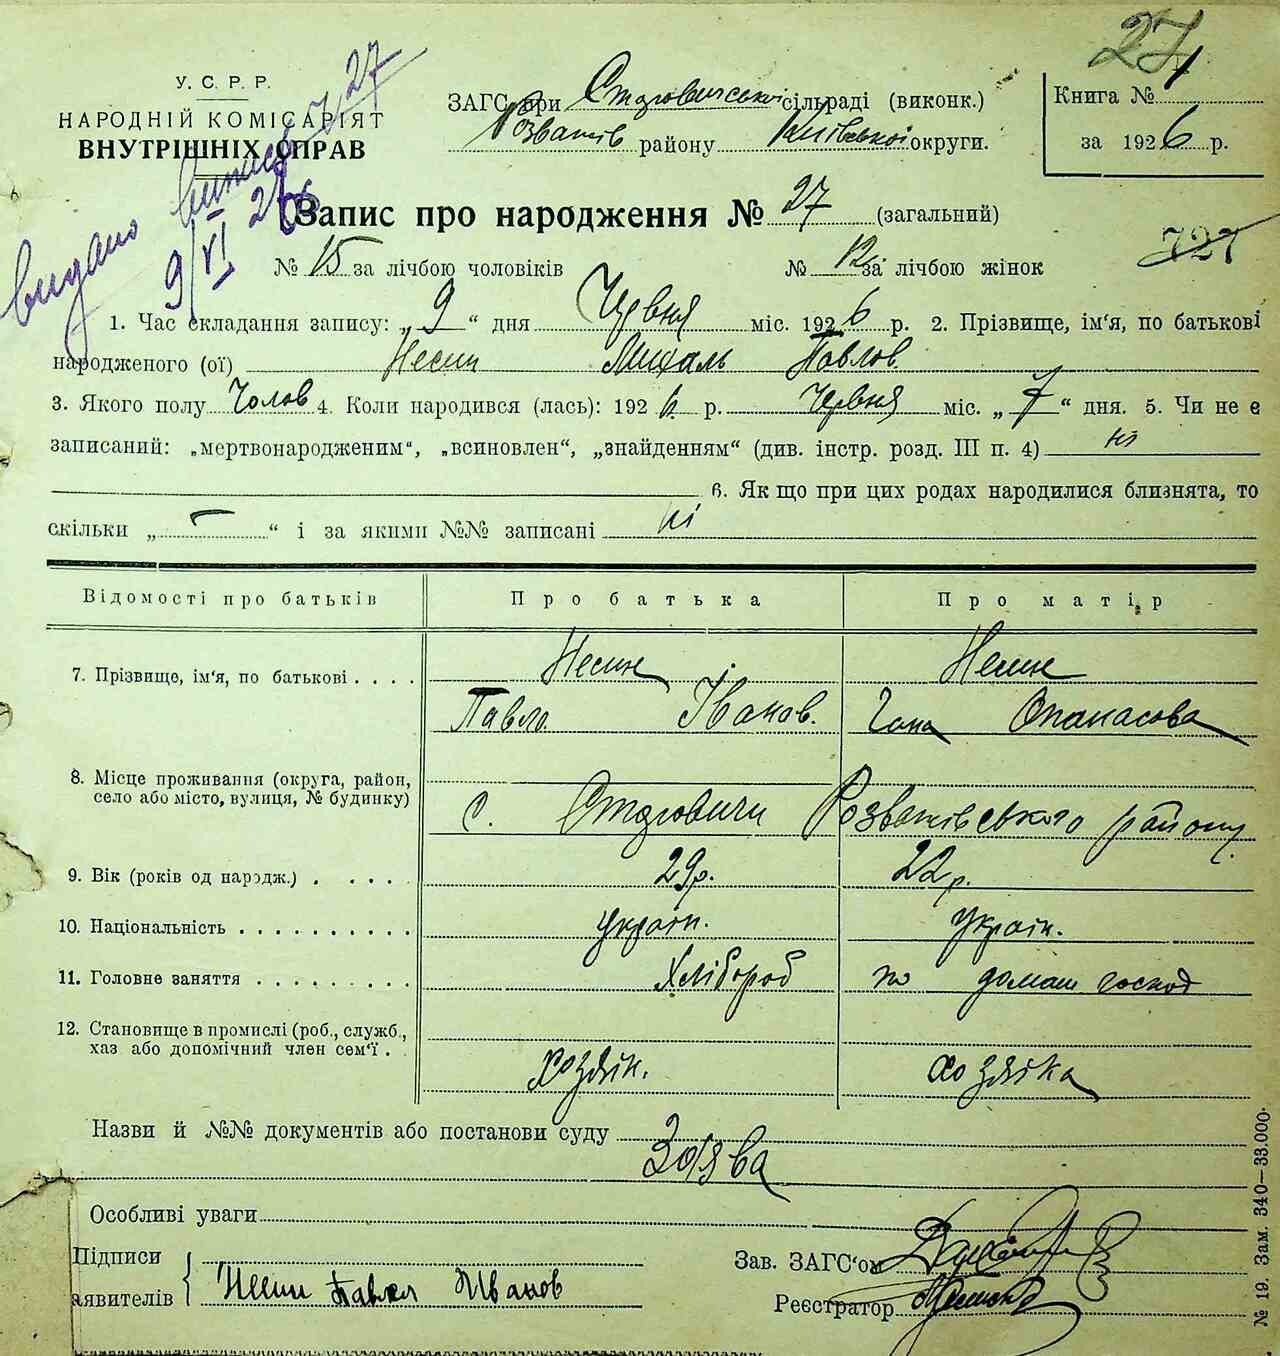 27
У. С. Р. Р.
НАРОДНІЙ КОМІСАРІЯТ
ВНУТРІШНІХ СПРАВ
видано виписъ № 27
9/VI 26
ЗАГС при Стаговичські сільраді (виконк.)
Розважів району Київської округи.
Книга № 1
за 1926 р.
Запис про народження № 27 (загальний)
727
№ 15 за лічбою чоловіків № 12 за лічбою жінок
1. Час складання запису: „ 9 “ дня Червня міс. 1926 р. 2. Прізвище, ім'я, по батькові
народженого (ої) Несин Михаль Павлов.
3. Якого полу Чолов 4. Коли народився (лась): 1926 р. Червня міс. „ 7 “ дня. 5. Чи не є
записаний: „мертвонародженим“, „всиновлен“, „знайденням“ (див. інстр. розд. III п. 4) ні
6. Як що при цих родах народилися близнята, то
скільки „ – “ і за якими №№ записані ні
Відомості про батьків Про батька Про матір
7. Прізвище, ім'я, по батькові . . . . Несин Несин
Павло Іванов. Гана Опанасова
8. Місце проживання (округа, район,
село або місто, вулиця, № будинку) с. Стаговичи Розважівського району
9. Вік (років од народж.) . . . . 29р. 22р.
10. Національність . . . . . . . . . . україн. україн.
11. Головне заняття . . . . . . . . . Хлібороб по домаш господ
12. Становище в промислі (роб., служб.,
хаз або допомічний член сем'ї . . хозяїн. хозяїка
Назви й №№ документів або постанови суду
Зоява
Особливі уваги
Підписи
аявителів Несин Павел Иванов
Зав. ЗАГС'ом
Реєстратор
№ 19. Зам. 340—33.000.